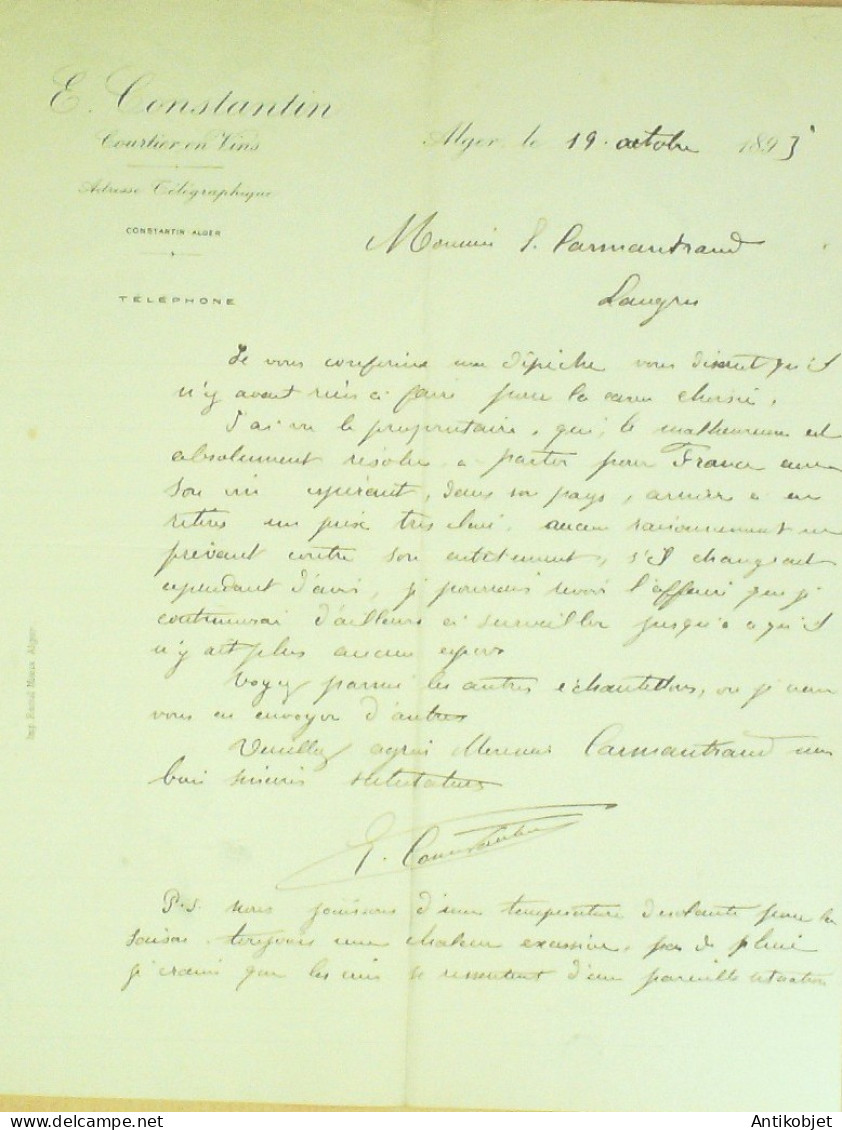 E. Constantin
Courtier en Vins
Adresse Télégraphique
CONSTANTIN ALGER
TÉLÉPHONE
Alger, le 19 octobre 1893
Monsieur Carmantrand
Langres
Je vous confirme ma dépêche vous disant qu'il
n'y avait rien à faire pour la cave choisie.
J'ai vu le propriétaire, qui, le malheureux est
absolument résolu à partir pour France avec
son vin espérant, dans son pays, arriver à en
retirer un prix très élevé, aucun raisonnement ne
prévaut contre son entêtement, s'il changeait
cependant d'avis, je pourrais revoir l'affaire que je
continuerai d'ailleurs à surveiller jusqu'à ce qu'il
n'y ait plus aucun espoir
Voyez parmi les autres échantillons, ou je vais
vous en envoyer d'autres
Veuillez agréer Monsieur Carmantrand mes
bien sincères salutations
E. Constantin
P.S. Nous jouissons d'une température désolante pour la
saison, toujours une chaleur excessive, pas de pluie
je crains que les vins se ressentent d'une pareille situation
Alger
Antikobjet